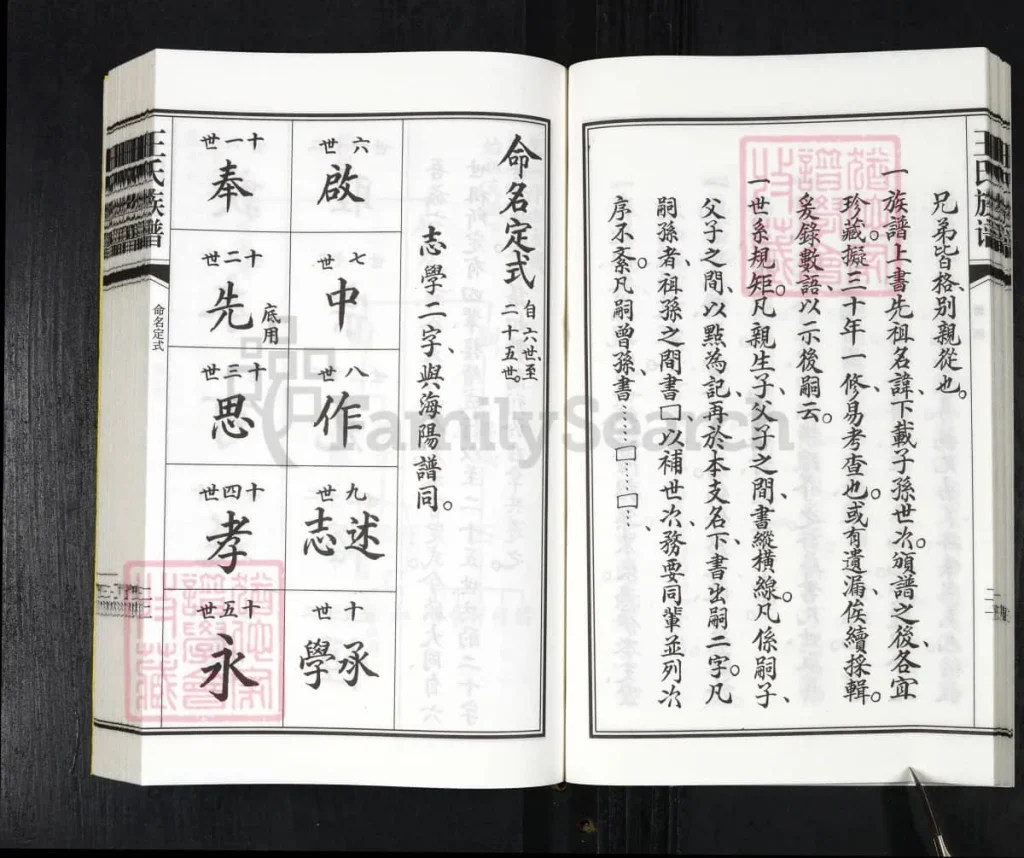 王氏族谱
兄弟皆格别親從也。
一族譜上書先祖名諱、下載子孫世次。頒譜之後、各宜
珍藏。擬三十年一修、易考查也。或有遺漏、俟續採輯。
爰錄數語、以示後嗣云。
一世系規矩。凡親生子、父子之間、書縱橫線。凡係嗣子、
父子之間、以點為記、再於本支名下、書出嗣二字。凡
嗣孫者、祖孫之間書□以補世次、務要同輩並列、次
序不紊。凡嗣曾孫、書……□……□…、
命名定式 自六世、至二十五世。
志學二字、與海陽譜同。
六世 啟
七世 中
八世 作
九世 述志
十世 承學
十一世 奉
十二世 先 底用
十三世 思
十四世 孝
十五世 永
王氏族譜
命名定式
二三
FamilySearch